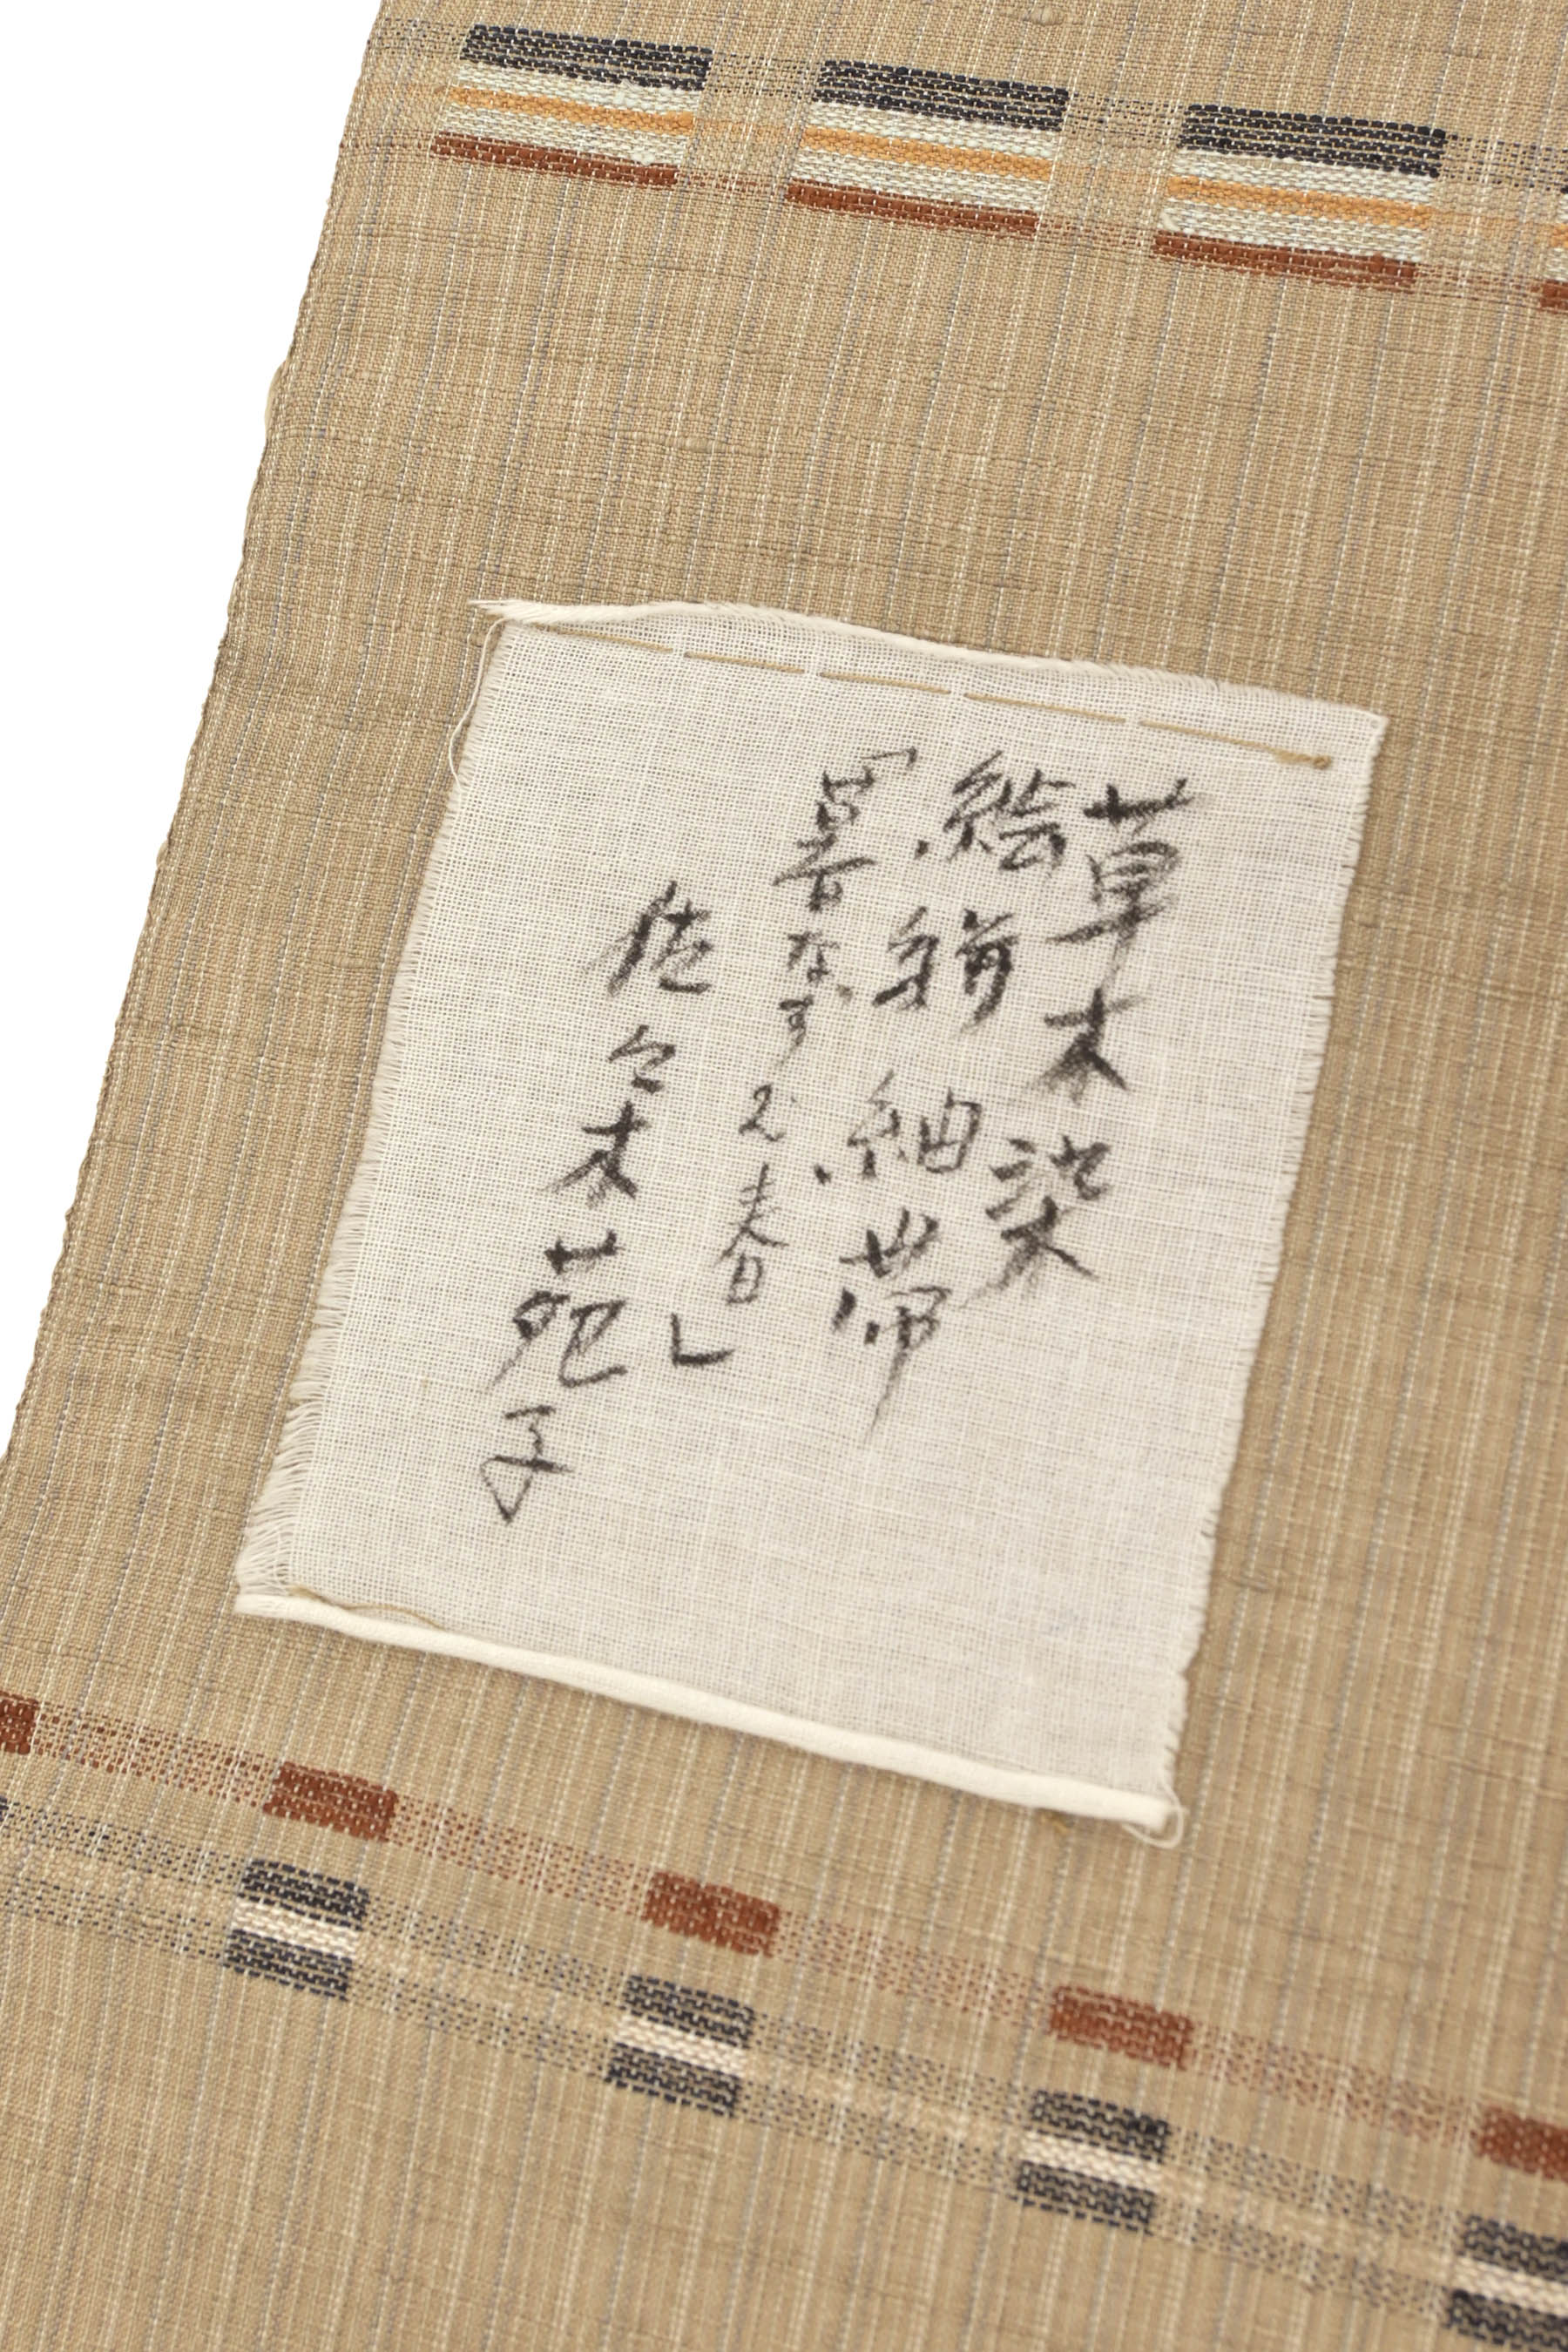 草木染
絵絣紬帯
「暮なずむ春」
佐々木苑子